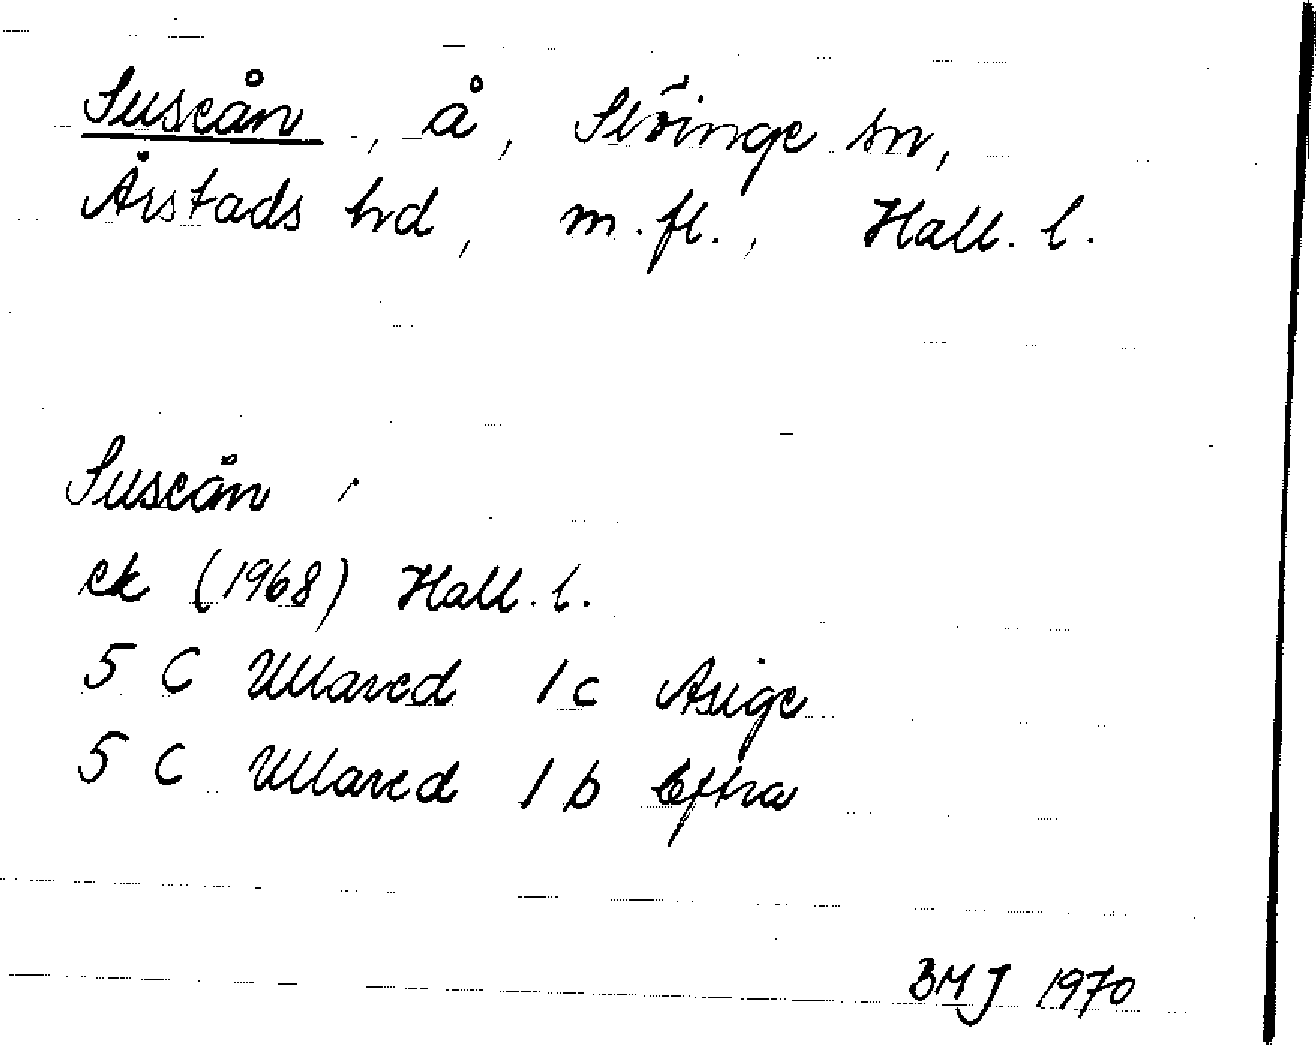 Suseån, å, Slöinge sn,
Årstads hd, m.fl., Hall. l.
Suseån
ek (1968) Hall. l.
5 C Ullared 1 c Asige
5 C Ullared 1 b Eftra
BMJ 1970